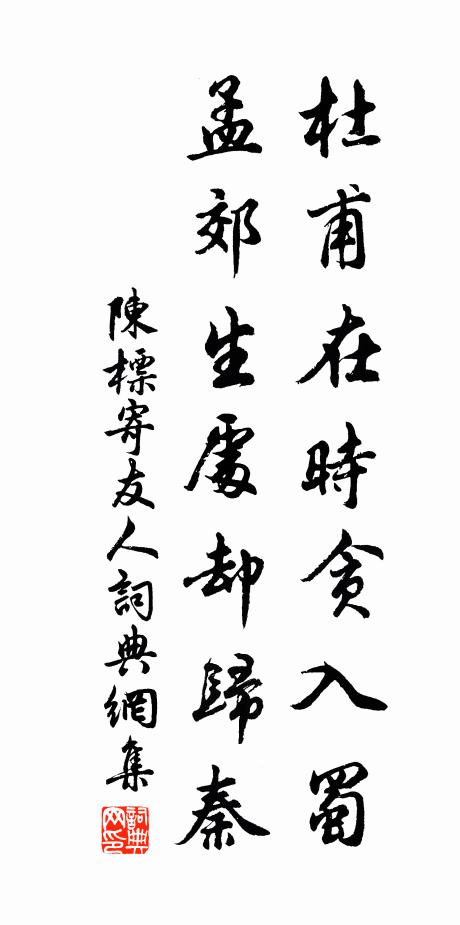 杜甫在時貪入蜀
孟郊生處却歸秦
陳標寄友人詞典網集
詞典网印